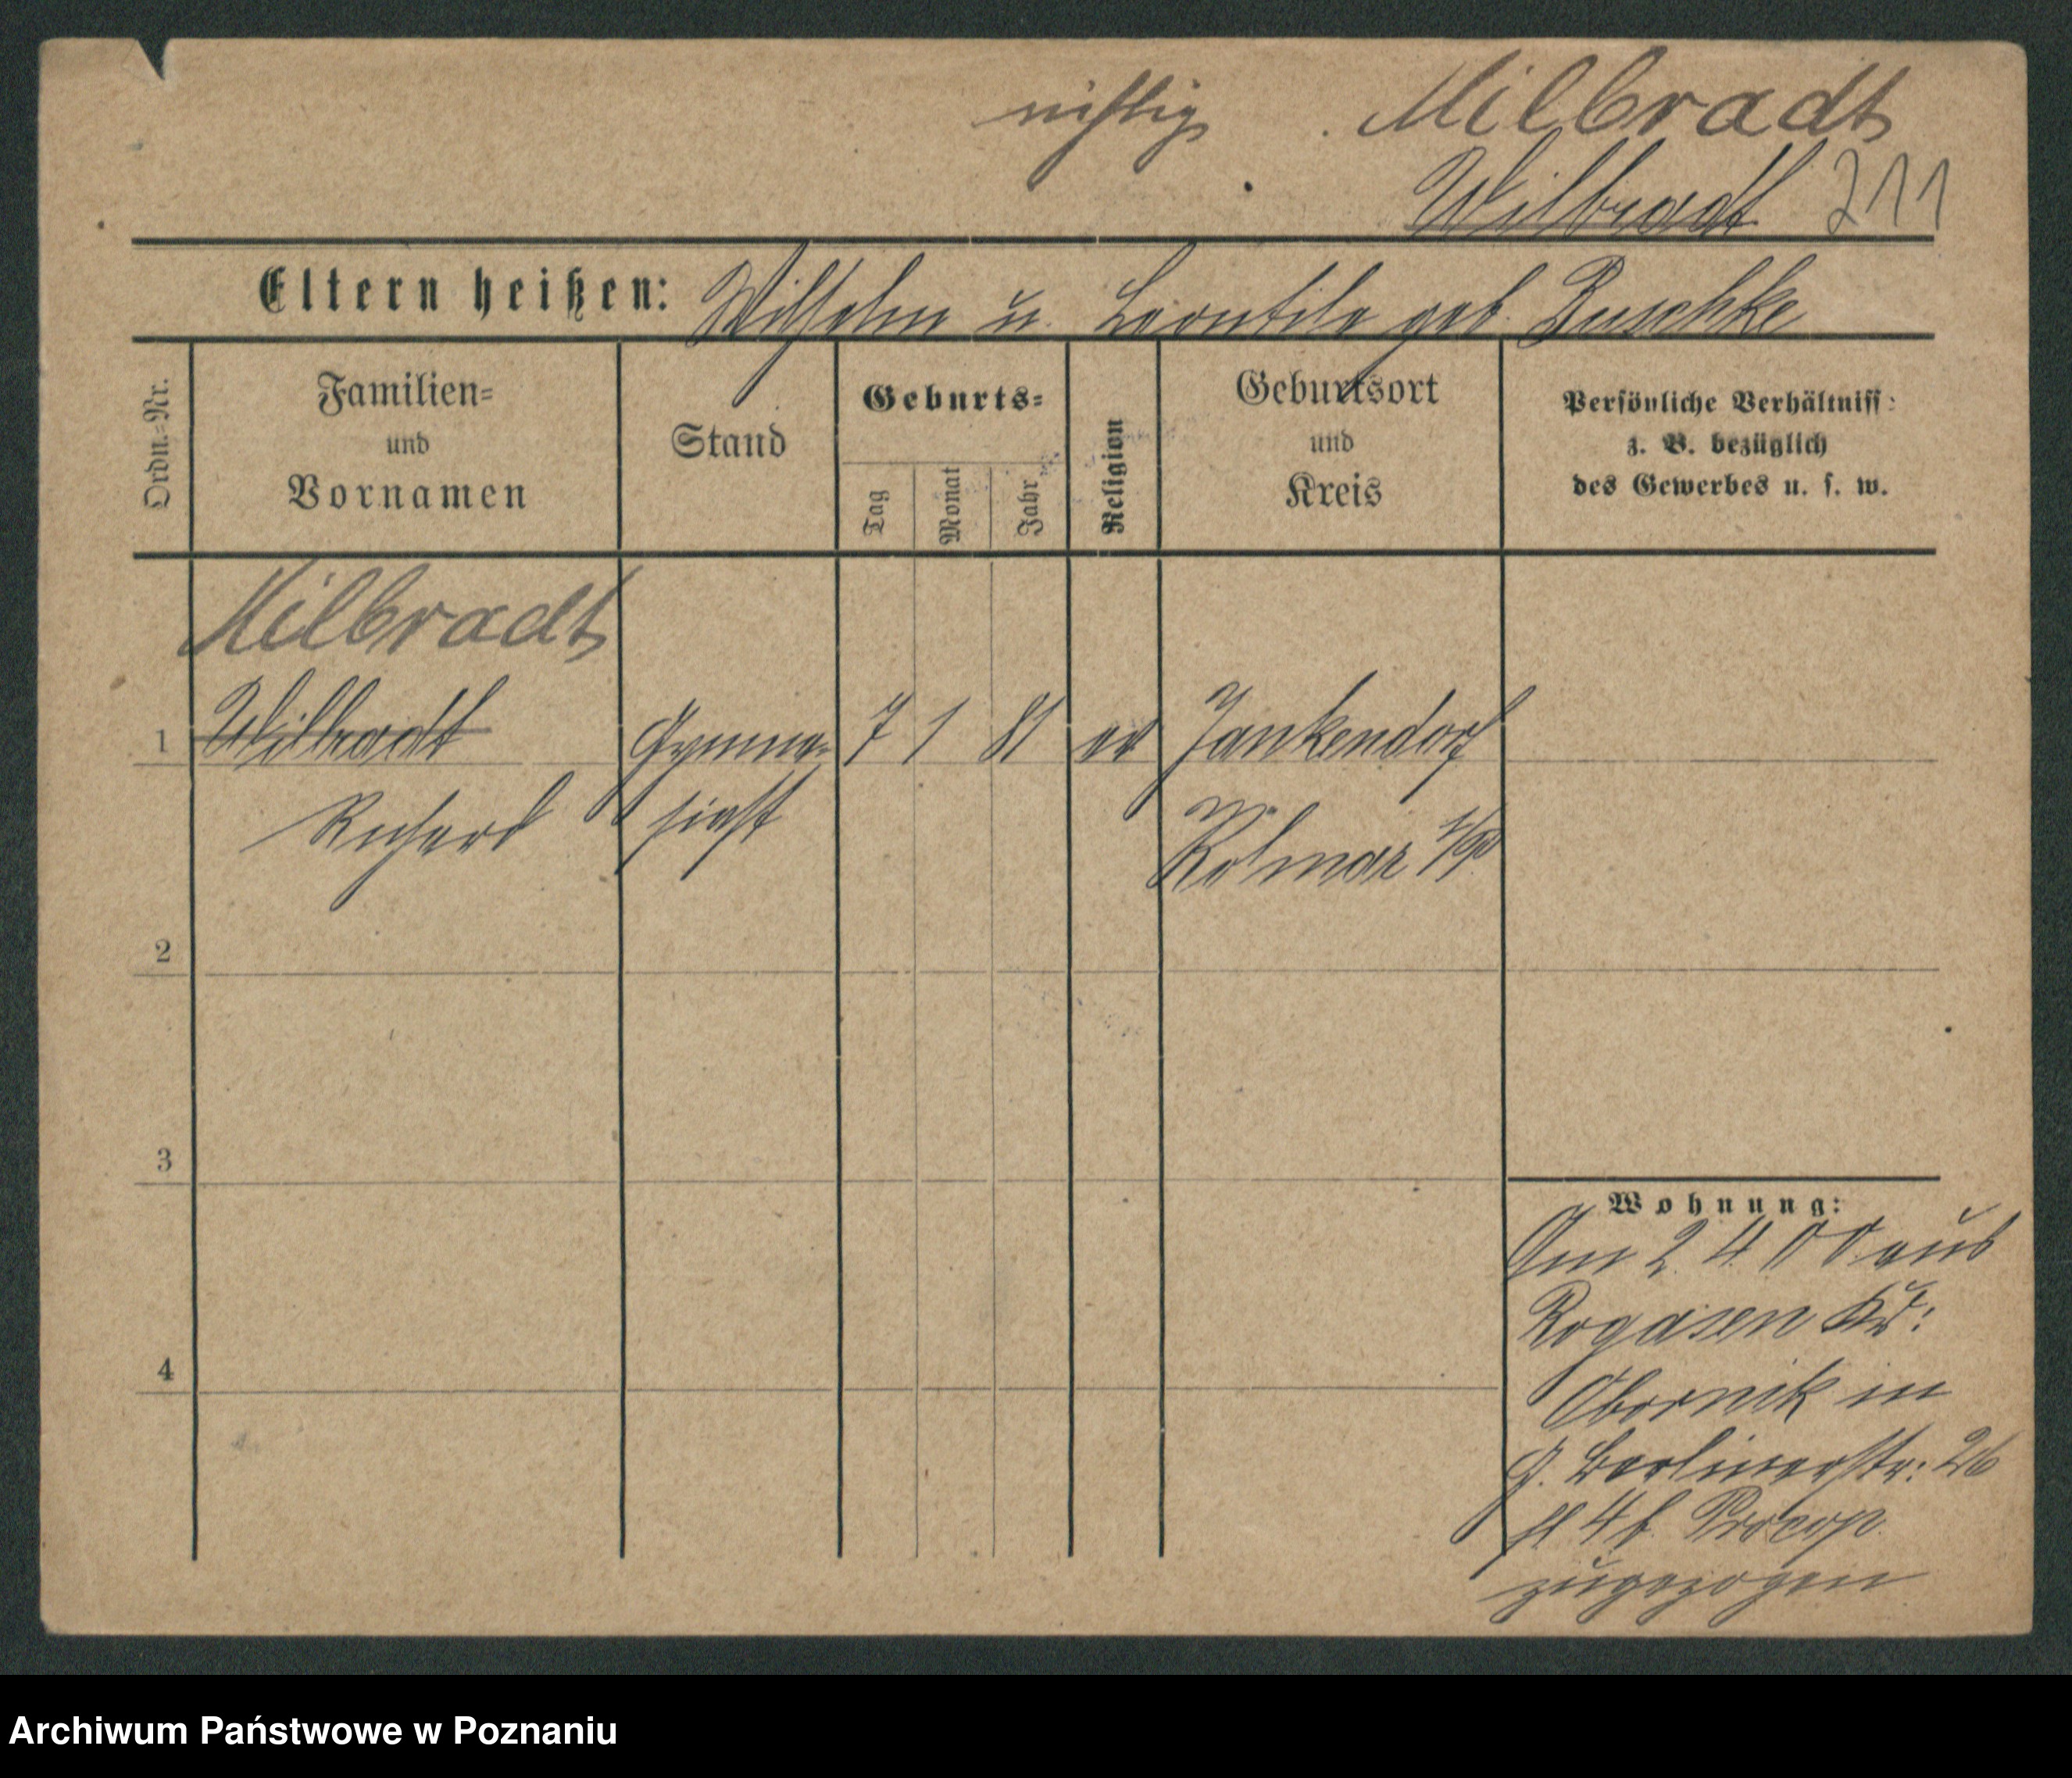 richtig Milbradt
Wilbradt 211
Eltern heißen: Wilhelm u. Leontile geb. Buschke
Ordn.=Nr.
Familien=
und
Vornamen
Stand
Geburts=
Tag
Monat
Jahr
Religion
Geburtsort
und
Kreis
Persönliche Verhältniss:
z. B. bezüglich
des Gewerbes u. s. w.
Milbradt
1 Wilbradt Gymna= 7 1 81 ev Jankendorf
Richard siast Kolmar i/P.
2
3
4
Wohnung:
Am 2. 4. 00 aus
Rogasen Kr:
Obornik in
G. Berlinerstr: 26
II b. Procop.
zugezogen
Archiwum Państwowe w Poznaniu